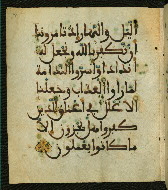 اليل والنهار اذ تامروننا
ان نكفر بالله ونجعل له
اندادا واسروا الندامة
لما راوا العذاب وجعلنا
الاغلل في اعناق الذين
كفروا هل يجزون الا
ما كانوا يعملون